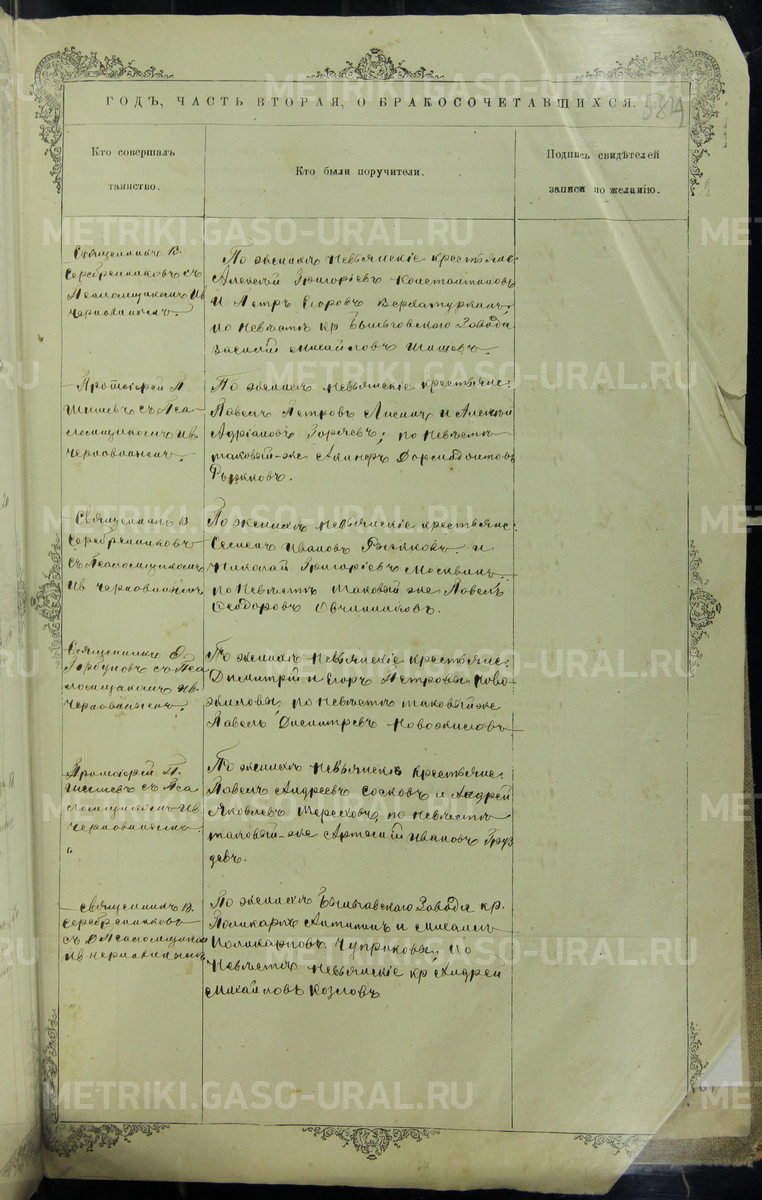 ГОДЪ, ЧАСТЬ ВТОРАЯ, О БРАКОСОЧЕТАВШИХСЯ.
584
Кто совершалъ
таинство.
Кто были поручители.
Подпись свидѣтелей
записи по желанію.
Священникъ В.
Серебренниковъ съ
Псаломщикомъ Ив
Чернавинымъ.
По женихѣ Невьянскіе крестьяне
Алексѣй Григоріевъ Константиновъ
и Петръ Егоровъ Верхатуркинъ,
по невѣстѣ кр Быньговскаго Завода
Василій Михайловъ
Протоіерей П
Шишевъ съ Пса-
ломщикомъ Ив.
Чернавинымъ.
По женихѣ Невьянскіе крестьяне:
Павелъ Петровъ и Алексѣй
Адріановъ; по невѣстѣ
таковой-же Акинфъ
Рыжковъ.
Священникъ В
Серебренниковъ
съ Псаломщикомъ
Ив Чернавинымъ
По женихѣ Невьянскіе крестьяне:
Семенъ Ивановъ Рыжковъ и
Николай Григоріевъ Москвинъ
по невѣстѣ таковой же Павелъ
Ѳеодоровъ Овчинниковъ.
Священникъ
Горбуновъ съ Пса
ломщикомъ Ив.
Чернавинымъ.
По женихѣ Невьянскіе крестьяне:
Димитрій и Егоръ Петровы Ново-
жиловы, по невѣстѣ таковый же
Павелъ Димитревъ Новожиловъ
Протоіерей П.
Шишевъ съ Пса
ломщикомъ Ив
Чернавинымъ.
По женихѣ Невьянскіе крестьяне:
Павелъ Андреевъ Сосковъ и Андрей
Яковлевъ, по невѣстѣ
таковой-же Артемій Ивановъ Груз
девъ.
Священникъ В.
Серебренниковъ
съ Псаломщикомъ
Ив Чернавинымъ
По женихѣ Быньговскаго Завода кр.
Поликарпъ и Михаилъ
Поликарповъ Чуприковы, по
Невѣстѣ Невьянскіе кр Андрей
Михайловъ Козловъ
METRIKI.GASO-URAL.RU
METRIKI.GASO-URAL.RU
METRIKI.GASO-URAL.RU
METRIKI.GASO-URAL.RU
METRIKI.GASO-URAL.RU
METRIKI.GASO-URAL.RU
METRIKI.GASO-URAL.RU
METRIKI.GASO-URAL.RU